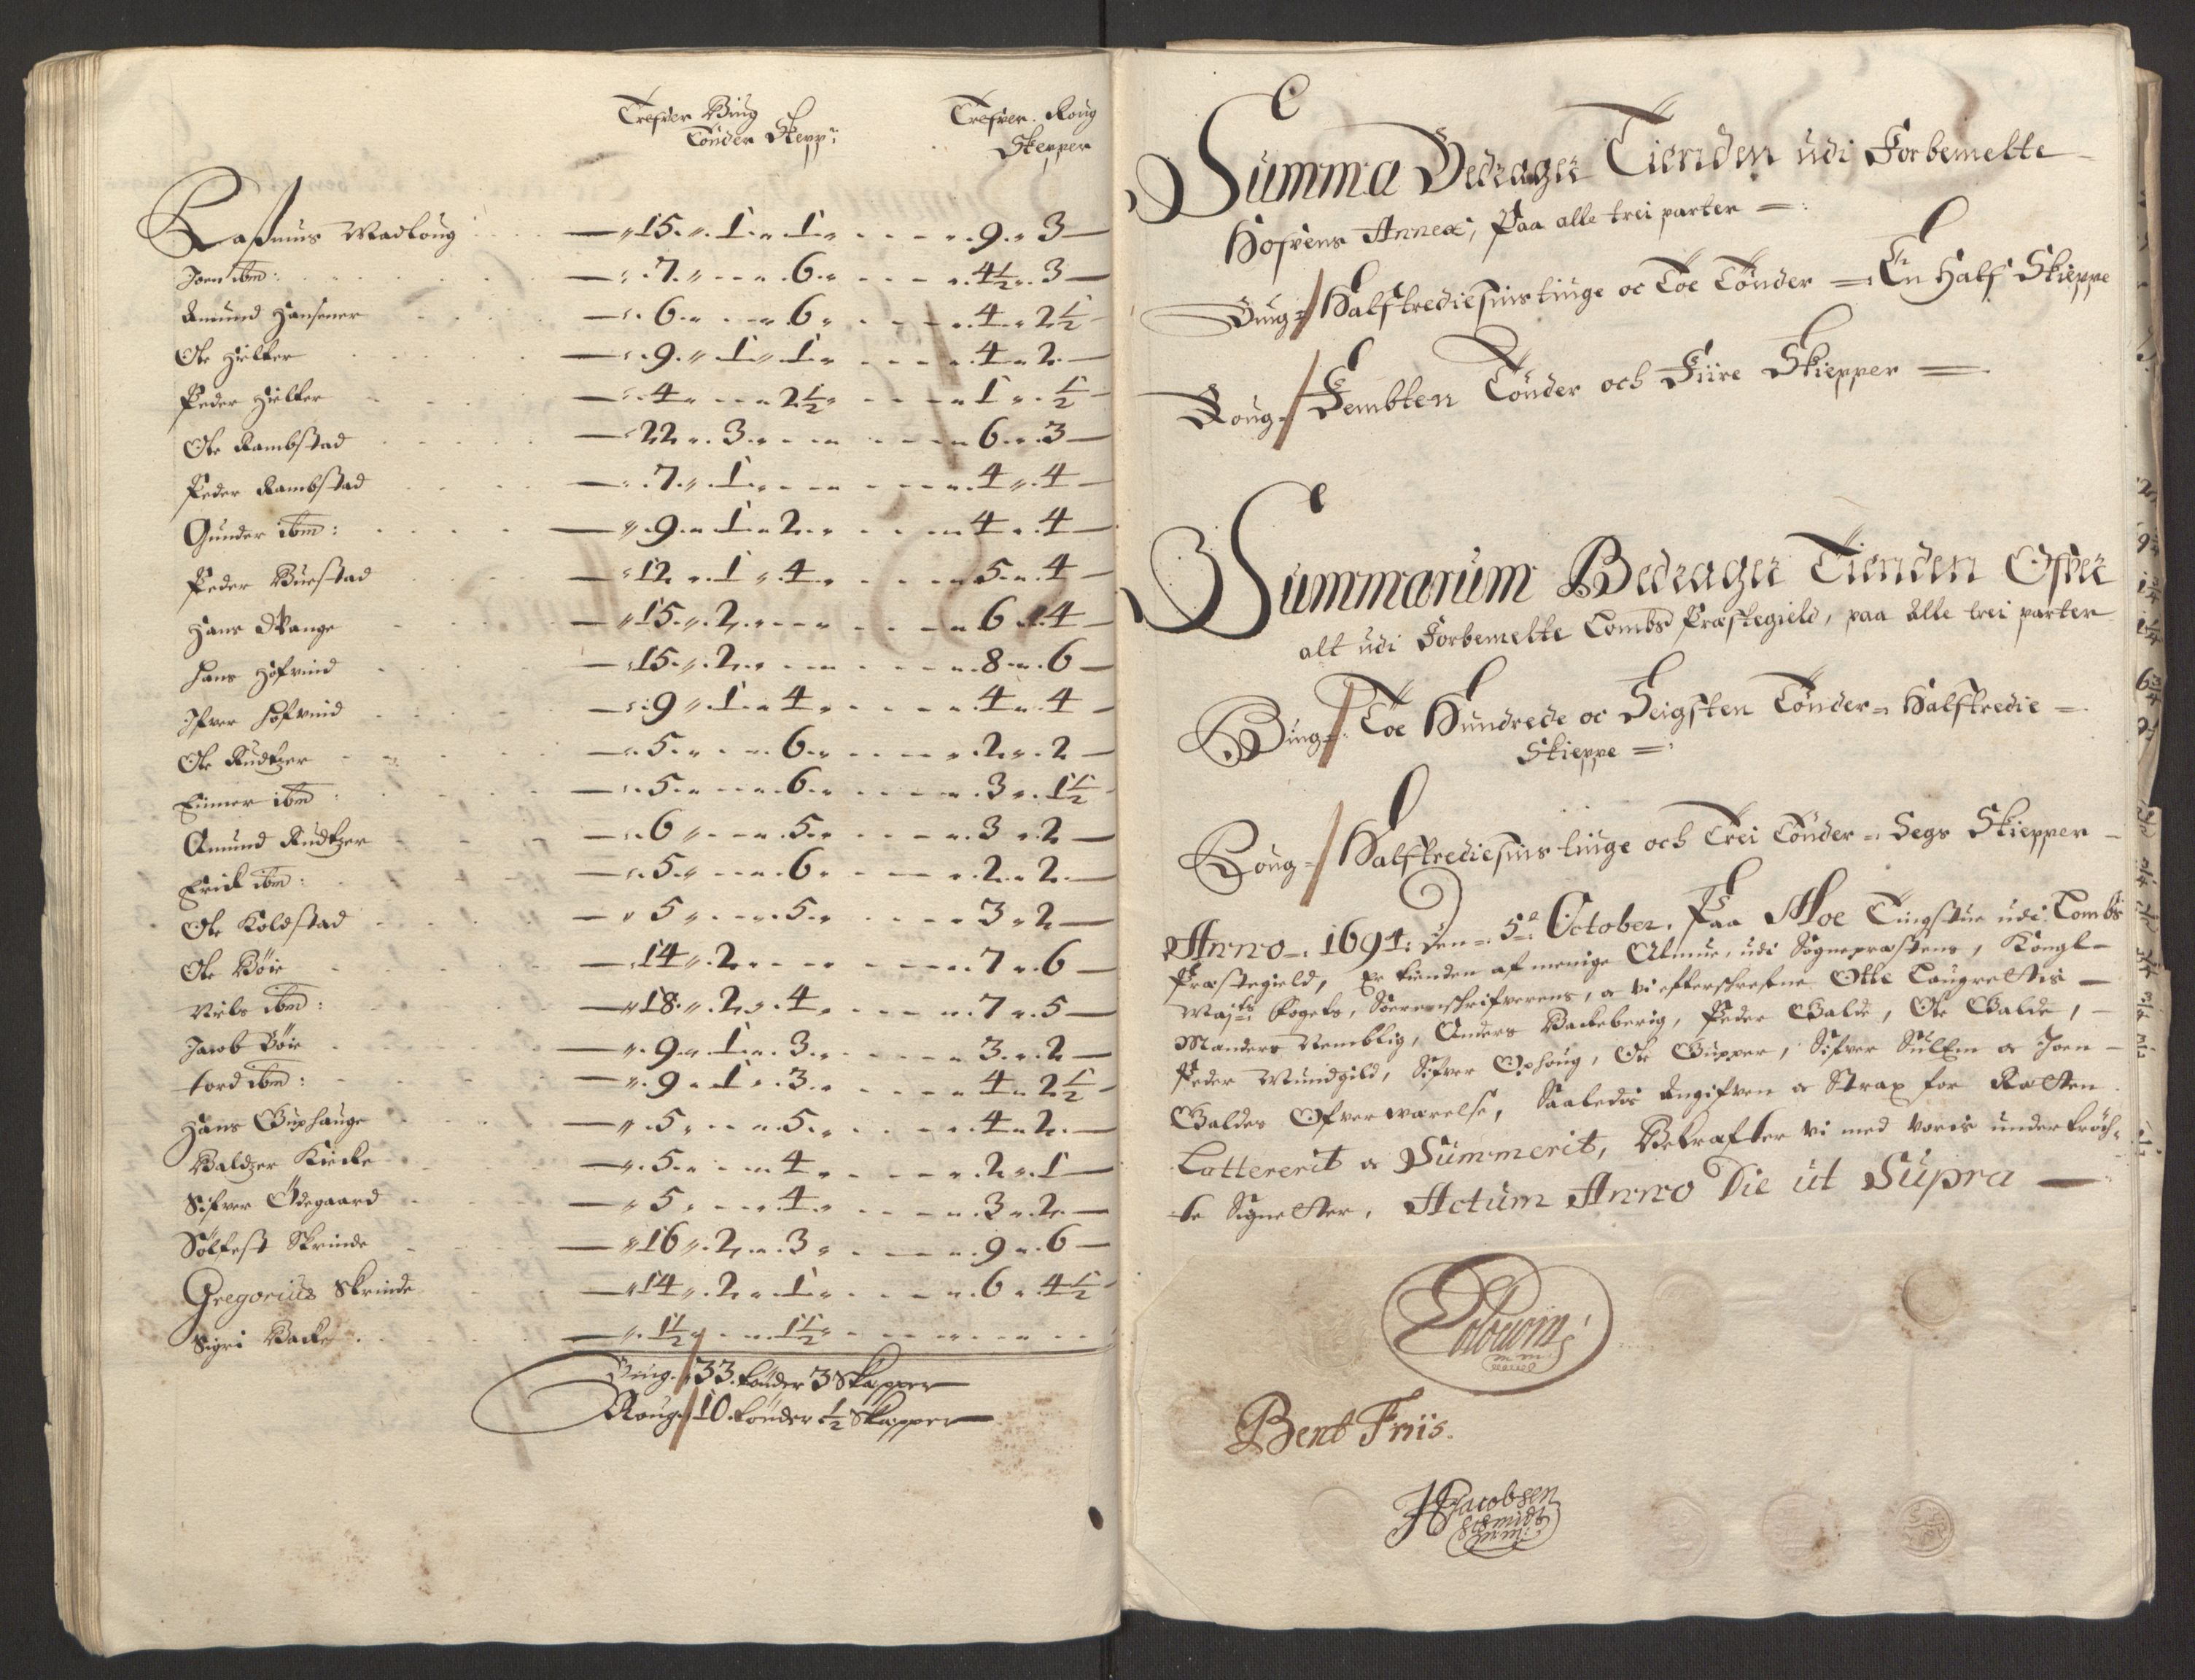 Trefver Biug Trefver Roug
Tønder Skepp: Skepper
Rasmus Wadloug 15 1 1 9 3
Joen ibm: 7 6 4½ 3
Amund Hansener 6 6 4 2½
Ole Hielker 9 1 1 4 2
Peder Hielker 4 2½ 1 ½
Ole Rambstad 22 3 6 3
Peder Rambstad 7 1 4 4
Gunder ibm: 9 1 2 4 4
Peder Buestad 12 1 4 5 4
Hans Wange 15 2 6 4
Hans Hofvind 15 2 8 6
Ifver Hofvind 9 1 4 4 4
Ole Rudtzer 5 6 2 2
Einner ibm: 5 6 3 1½
Amund Rudtzer 6 5 3 2
Erick ibm: 5 6 2 2
Ole Koldstad 5 5 3 2
Ole Bøie 14 2 7 6
Niels ibm: 18 2 4 7 5
Jacob Bøie 9 1 3 3 2
Tord ibm: 9 1 3 4 2½
Hans Guphauge 5 5 4 2
Baldzer Kircke 5 4 2 1
Sifver Ødegaard 5 4 3 2
Sølfest Skrinde 16 2 3 9 6
Gregorius Skrinde 14 2 1 6 4½
Sigri Backe 1½ 1½
Biug 33 tønder 3 Skepper
Roug 10 tønder ½ Skepper
Summa Bedrager Tienden udi Forbemelte
Hofvens Annex, Paa alle trei parter
Biug Halftrediesinstiuge oc Toe Tønder En Half Skieppe
Roug Fembten Tønder och Fiire Skiepper
Summarum Bedrager Tienden Ofver
alt udi Forbemelte Tombs Præstegield, paa alle trei parter
Biug Toe Hundrede oc Seigsten Tønder Halftredie
Skieppe
Roug Halftrediesinstiuge och Trei Tønder Segs Skiepper
Anno 1694: den 5te October. Paa Moe Tingstue udi Tombs
Præstegield, Er tienden af menige Almue, udi Sogneprestens, Kongl
Maj:ts Fogets, Sorenschrifverens, oc vi efterschrefne Otte Laugrettis
Manders Nemblig, Anders Backeberig, Peder Galde, Ole Galde,
Peder Mundgild, Sifver Ophoug, Ole Gupper, Sifver Sulem oc Joen
Galdes Ofverwærelse, Saaledis Angifven oc Strax for Retten
Lattererit oc Summerit, Bekræfter vi med voris undertröch-
te Signetter, Actum Anno Die ut Supra
Bent Friis.
H Jacobsen
Schmidt
mm: